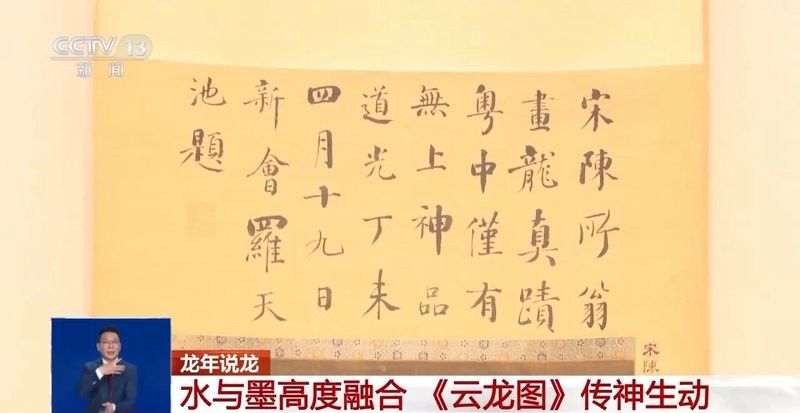 CCTV 13
新闻
宋陳所翁
畫龍真蹟
粤中僅有
無上神品
道光丁未
四月十九日
新會羅天
池題
宋陳
龙年说龙
水与墨高度融合 《云龙图》传神生动